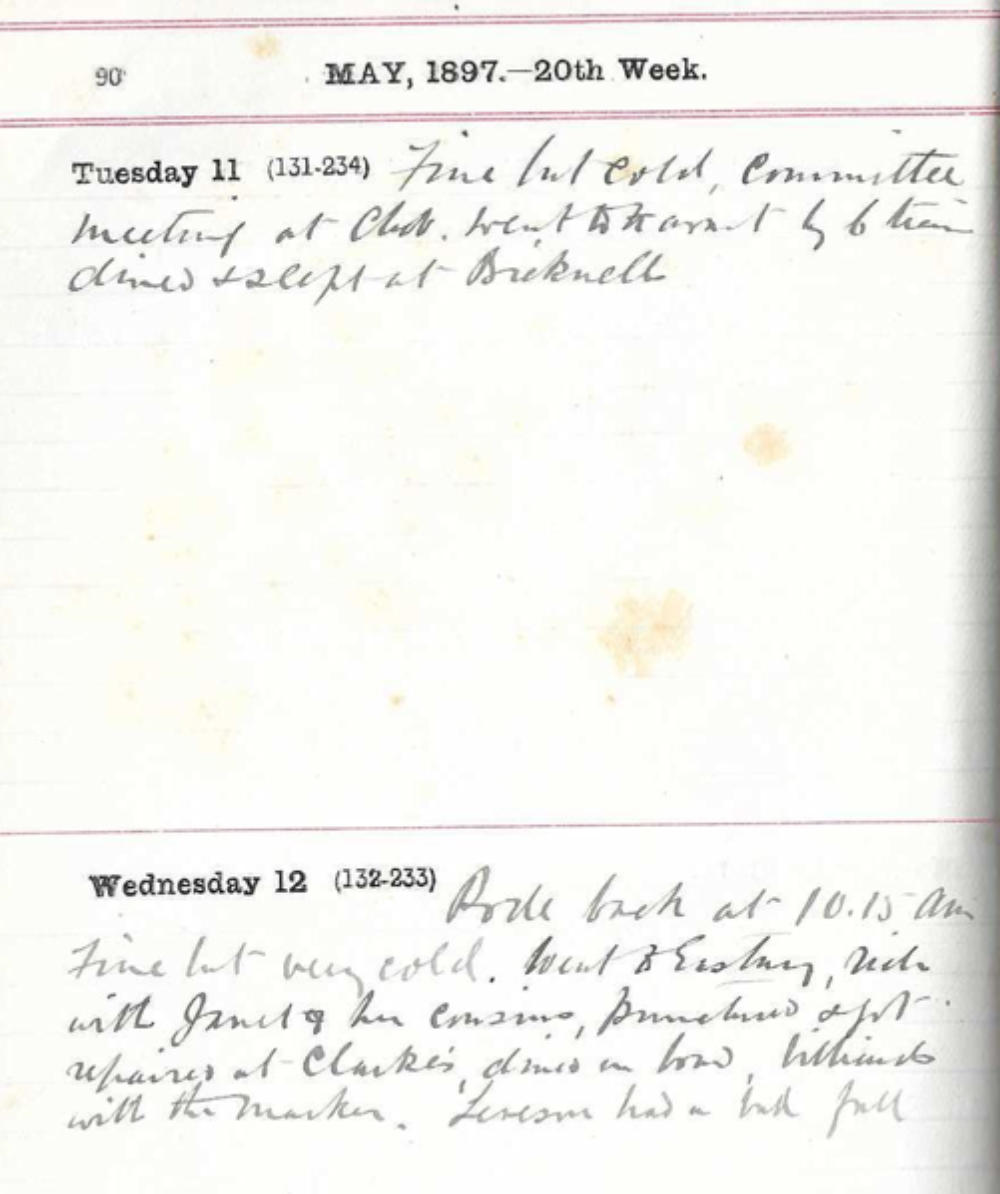 90
MAY, 1897.—20th Week.
Tuesday 11 (131-234) Fine but cold, Committee
meeting at Club. Went to Havant by 6 train
dined & slept at Bricknells
Wednesday 12 (132-233) Rode back at 10.15 am
Fine but very cold. Went to Eastney, ride
with Janet & her cousins, punctured & got
repaired at Clarke's, dined on board, billiards
with the Marker. Leveson had a bad fall